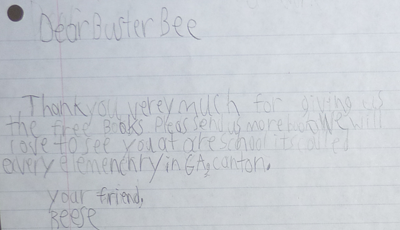 Dear Buster Bee
Thank you verey much for giving us
the free Books Pleas send us more books We will
love to see you at are school it's called
avery elementry in GA, canton.
your friend,
Reese